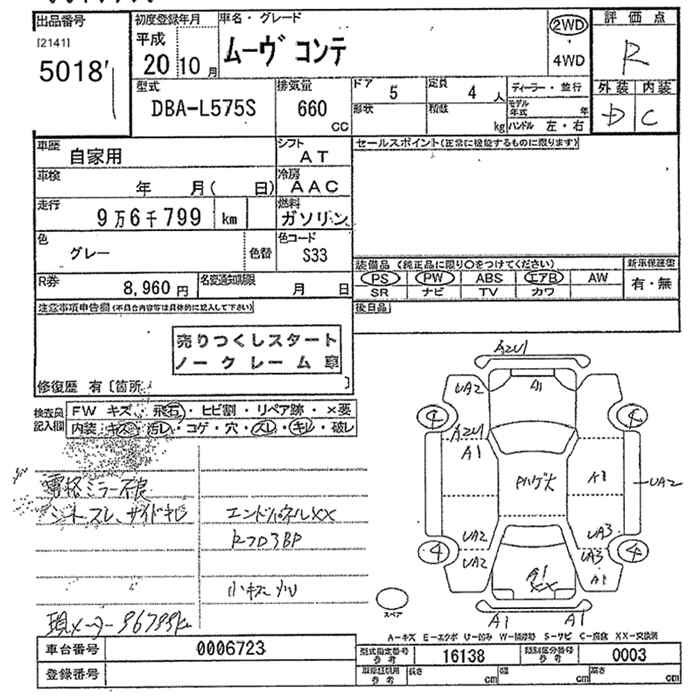 出品番号 初度登録年月 車名・グレード 評価点
[2141] 平成 ムーヴ コンテ 2WD R
5018 20年10月 4WD 外装 内装
型式 排気量 ドア 定員 ディーラー・並行 D C
DBA-L575S 660 5 4人 モデル年式 年
CC 形状 積載 kg ハンドル 左・右
車歴 シフト セールスポイント(正常に機能するものに限ります)
自家用 AT
車検 冷房
年 月( 日) AAC
走行 燃料
9万6千799 km ガソリン
色 色替 色コード
グレー S33
装備品 (純正品に限り○をつけてください) 新車保証書
R券 名変通知期限 PS PW ABS エアB AW 有・無
8,960円 月 日 SR ナビ TV カワ
注意事項申告欄(不具合内容等は具体的に記入して下さい) 後日品
売りつくしスタート
ノークレーム 車
修復歴 有 [箇所 ]
検査員 FW キズ・飛石・ヒビ割・リペア跡・×要
記入欄 内装・キズ・汚レ・コゲ・穴・スレ・キレ・破レ
電格ミラー不良
シートスレ、サイドキレ エンドパネルXX
小キズ
現メーター 96799km
AZU1
UA2 A1 UA2
4 4
AZU1
A1 Pハゲ大 UA2
UA2 UA3
4 4
UA2 UA3
A1 XX A1
スペア
A1 A1
A-キズ E-エクボ U-凹み W-補修跡 S-サビ C-腐食 XX-交換済
車台番号 0006723 型式指定番号 参考 16138 類別区分番号 参考 0003
登録番号 参考 長さ cm 幅 cm 高さ cm